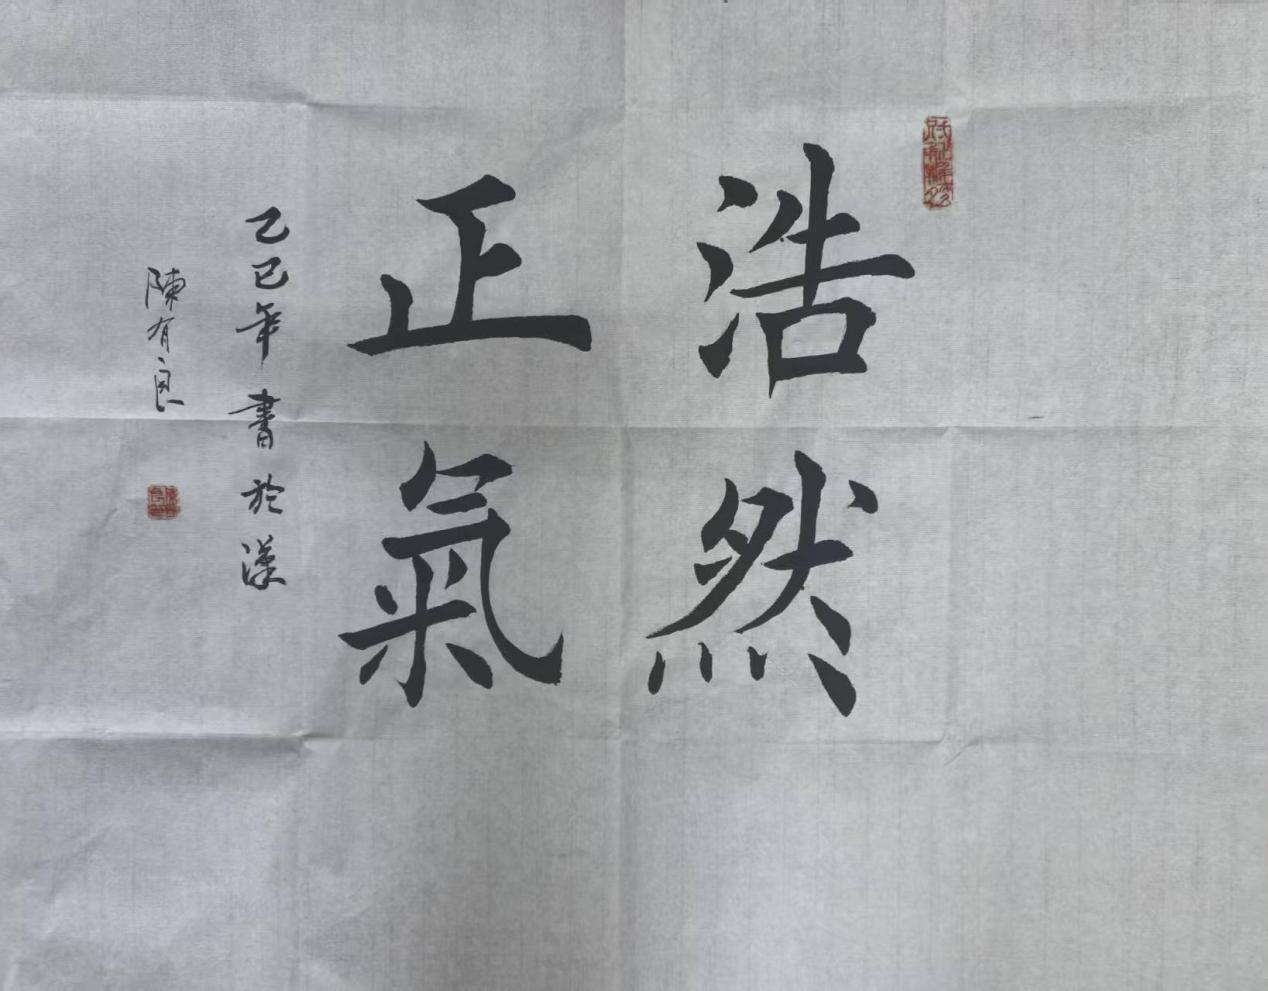 浩然
正氣
乙巳年書於漢
陳有良